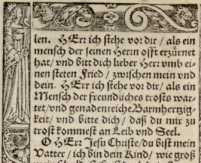 len. HErr ich stehe vor dir / als ein
mensch der seinen Herrn offt erzürnet
hat / vnd bitt dich lieber Herr vmb ei-
nen steten Fried / zwischen mein vnd
dein. HErr ich stehe vor dir / als ein
Mensch der freundliches trosts war-
tet / vnd genadenreiche Barmhertzig-
keit / vnd bitte dich / daß du mir zu
trost kommest an Leib vnd Seel.
O HErr Jesu Christe / du bist mein
Vatter / ich bin dein Kind / wie groß